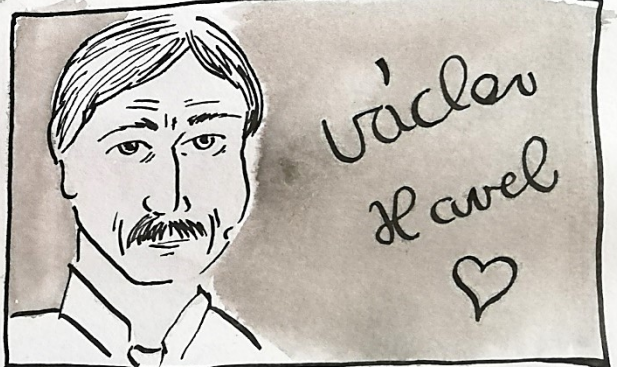 Václav
Havel